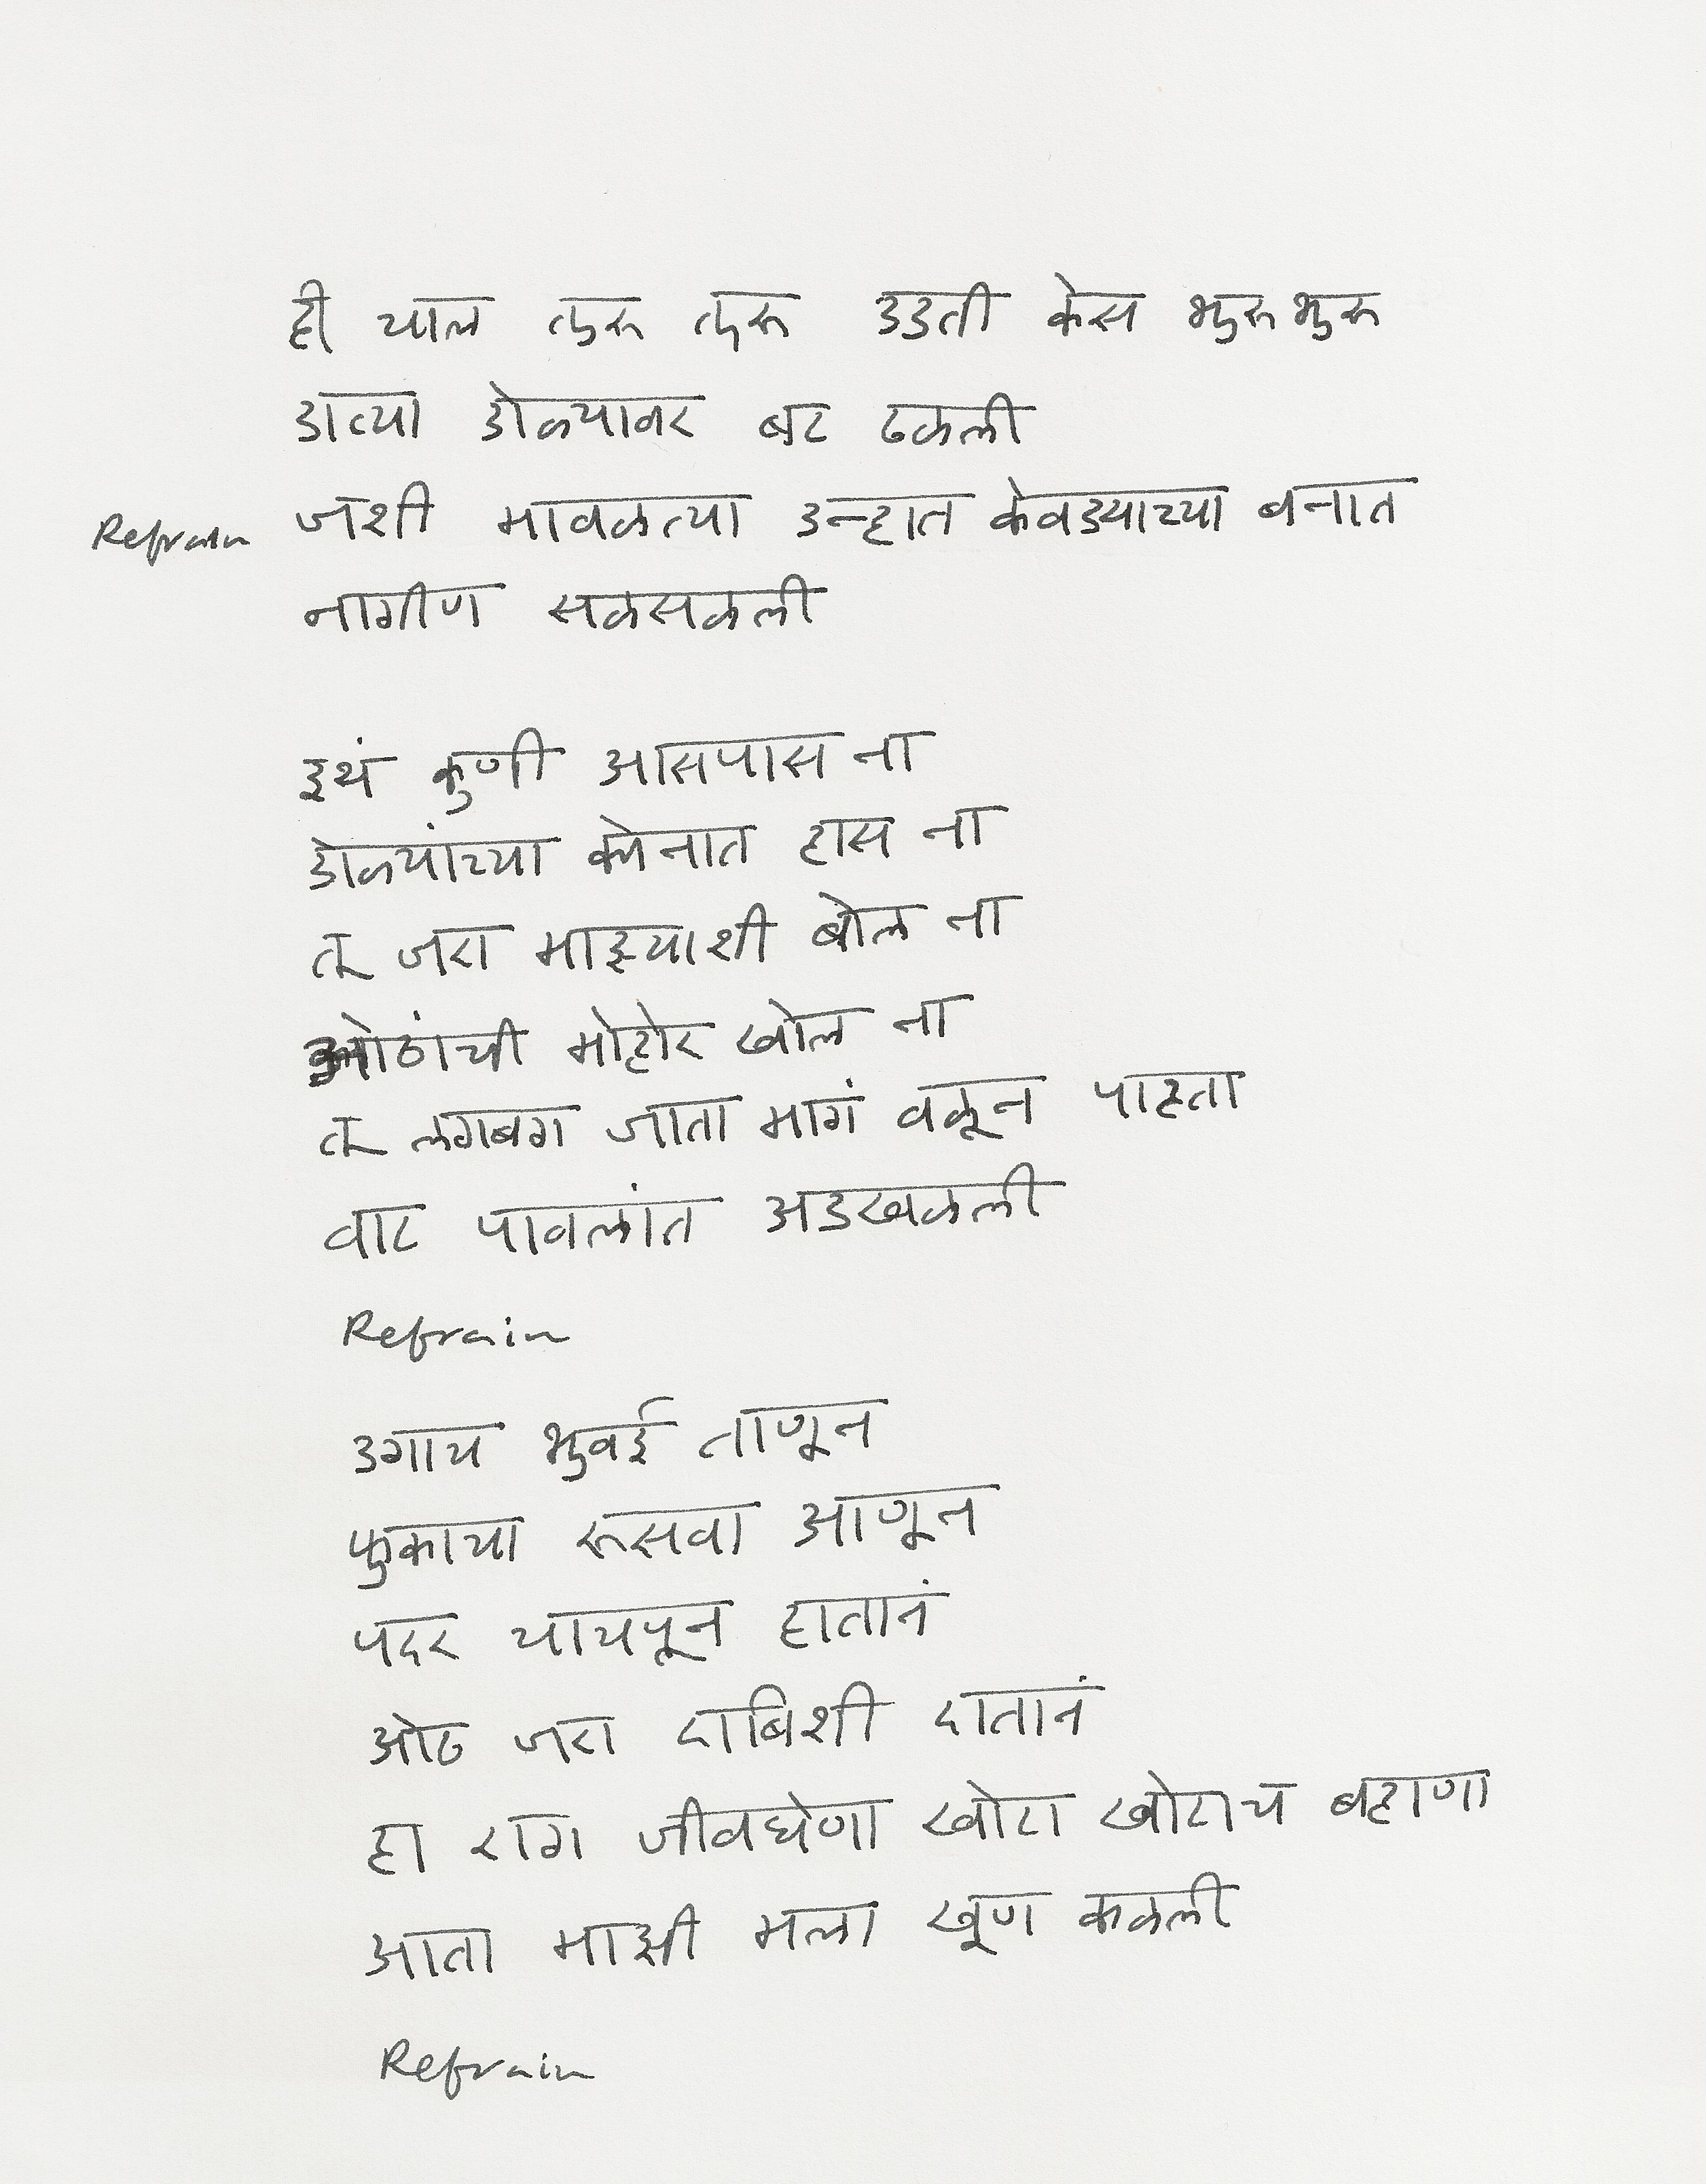 ही चाल तुरु तुरु उडती केस भुरुभुरु
डाव्या डोळ्यावर बट ढळली
Refrain जशी मावळत्या उन्हात केवड्याच्या बनात
नागीण सळसळली
इथं कुणी आसपास ना
डोळ्यांच्या कोनात हास ना
तू जरा माझ्याशी बोल ना
ओठांची मोहोर खोल ना
तू लगबग जाता मागं वळून पाहता
वाट पावलांत अडखळली
Refrain
उगाच भुवई ताणून
फुकाचा रूसवा आणून
पदर चाचपून हातानं
ओठ जरा दाबिशी दातानं
हा राग जीवघेणा खोटा खोटाच बहाणा
आता माझी मला खूण कळली
Refrain